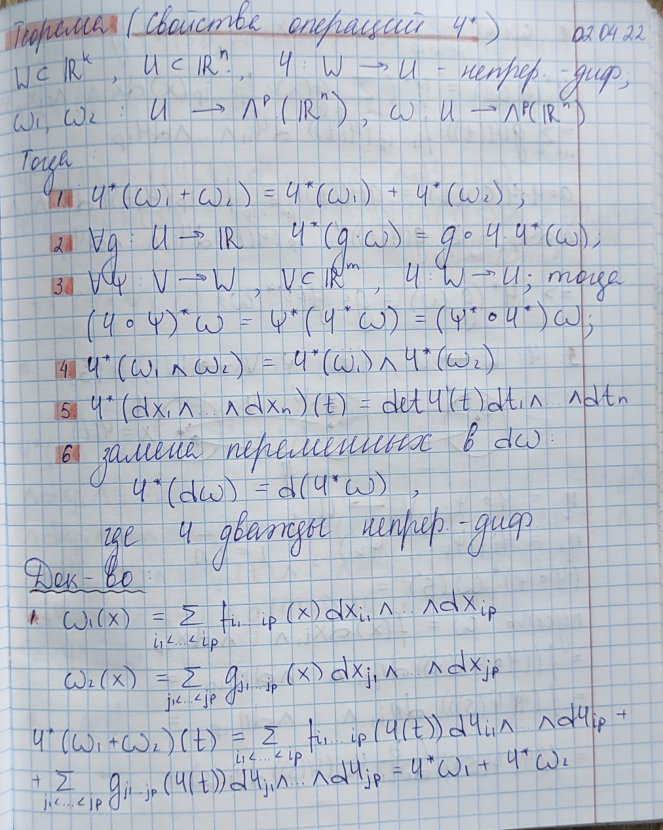 Теорема (Свойства операций φ*) 02.04.22
W ⊂ ℝᵏ, U ⊂ ℝⁿ, φ: W → U - непрер.-диф,
ω₁, ω₂ : U → Λᵖ(ℝⁿ), ω: U → Λᵖ(ℝⁿ)
Тогда:
1. φ*(ω₁ + ω₂) = φ*(ω₁) + φ*(ω₂);
2. ∀g: U → ℝ φ*(g·ω) = g∘φ·φ*(ω);
3. ∀ψ: V → W, V ⊂ ℝᵐ, φ: W → U; тогда
(φ∘ψ)*ω = ψ*(φ*ω) = (ψ*∘φ*)ω;
4. φ*(ω₁ ∧ ω₂) = φ*(ω₁) ∧ φ*(ω₂)
5. φ*(dx₁ ∧ ... ∧ dxₙ)(t) = det φ'(t) dt₁ ∧ ... ∧ dtₙ
6. замена переменных в dω:
φ*(dω) = d(φ*ω),
где φ дважды непрер.-диф.
Док-во:
1. ω₁(x) = Σ_{i₁<...<iₚ} f_{i₁...iₚ}(x) dx_{i₁} ∧ ... ∧ dx_{iₚ}
ω₂(x) = Σ_{j₁<...<jₚ} g_{j₁...jₚ}(x) dx_{j₁} ∧ ... ∧ dx_{jₚ}
φ*(ω₁+ω₂)(t) = Σ_{i₁<...<iₚ} f_{i₁...iₚ}(φ(t)) dφ_{i₁} ∧ ... ∧ dφ_{iₚ} +
+ Σ_{j₁<...<jₚ} g_{j₁...jₚ}(φ(t)) dφ_{j₁} ∧ ... ∧ dφ_{jₚ} = φ*ω₁ + φ*ω₂